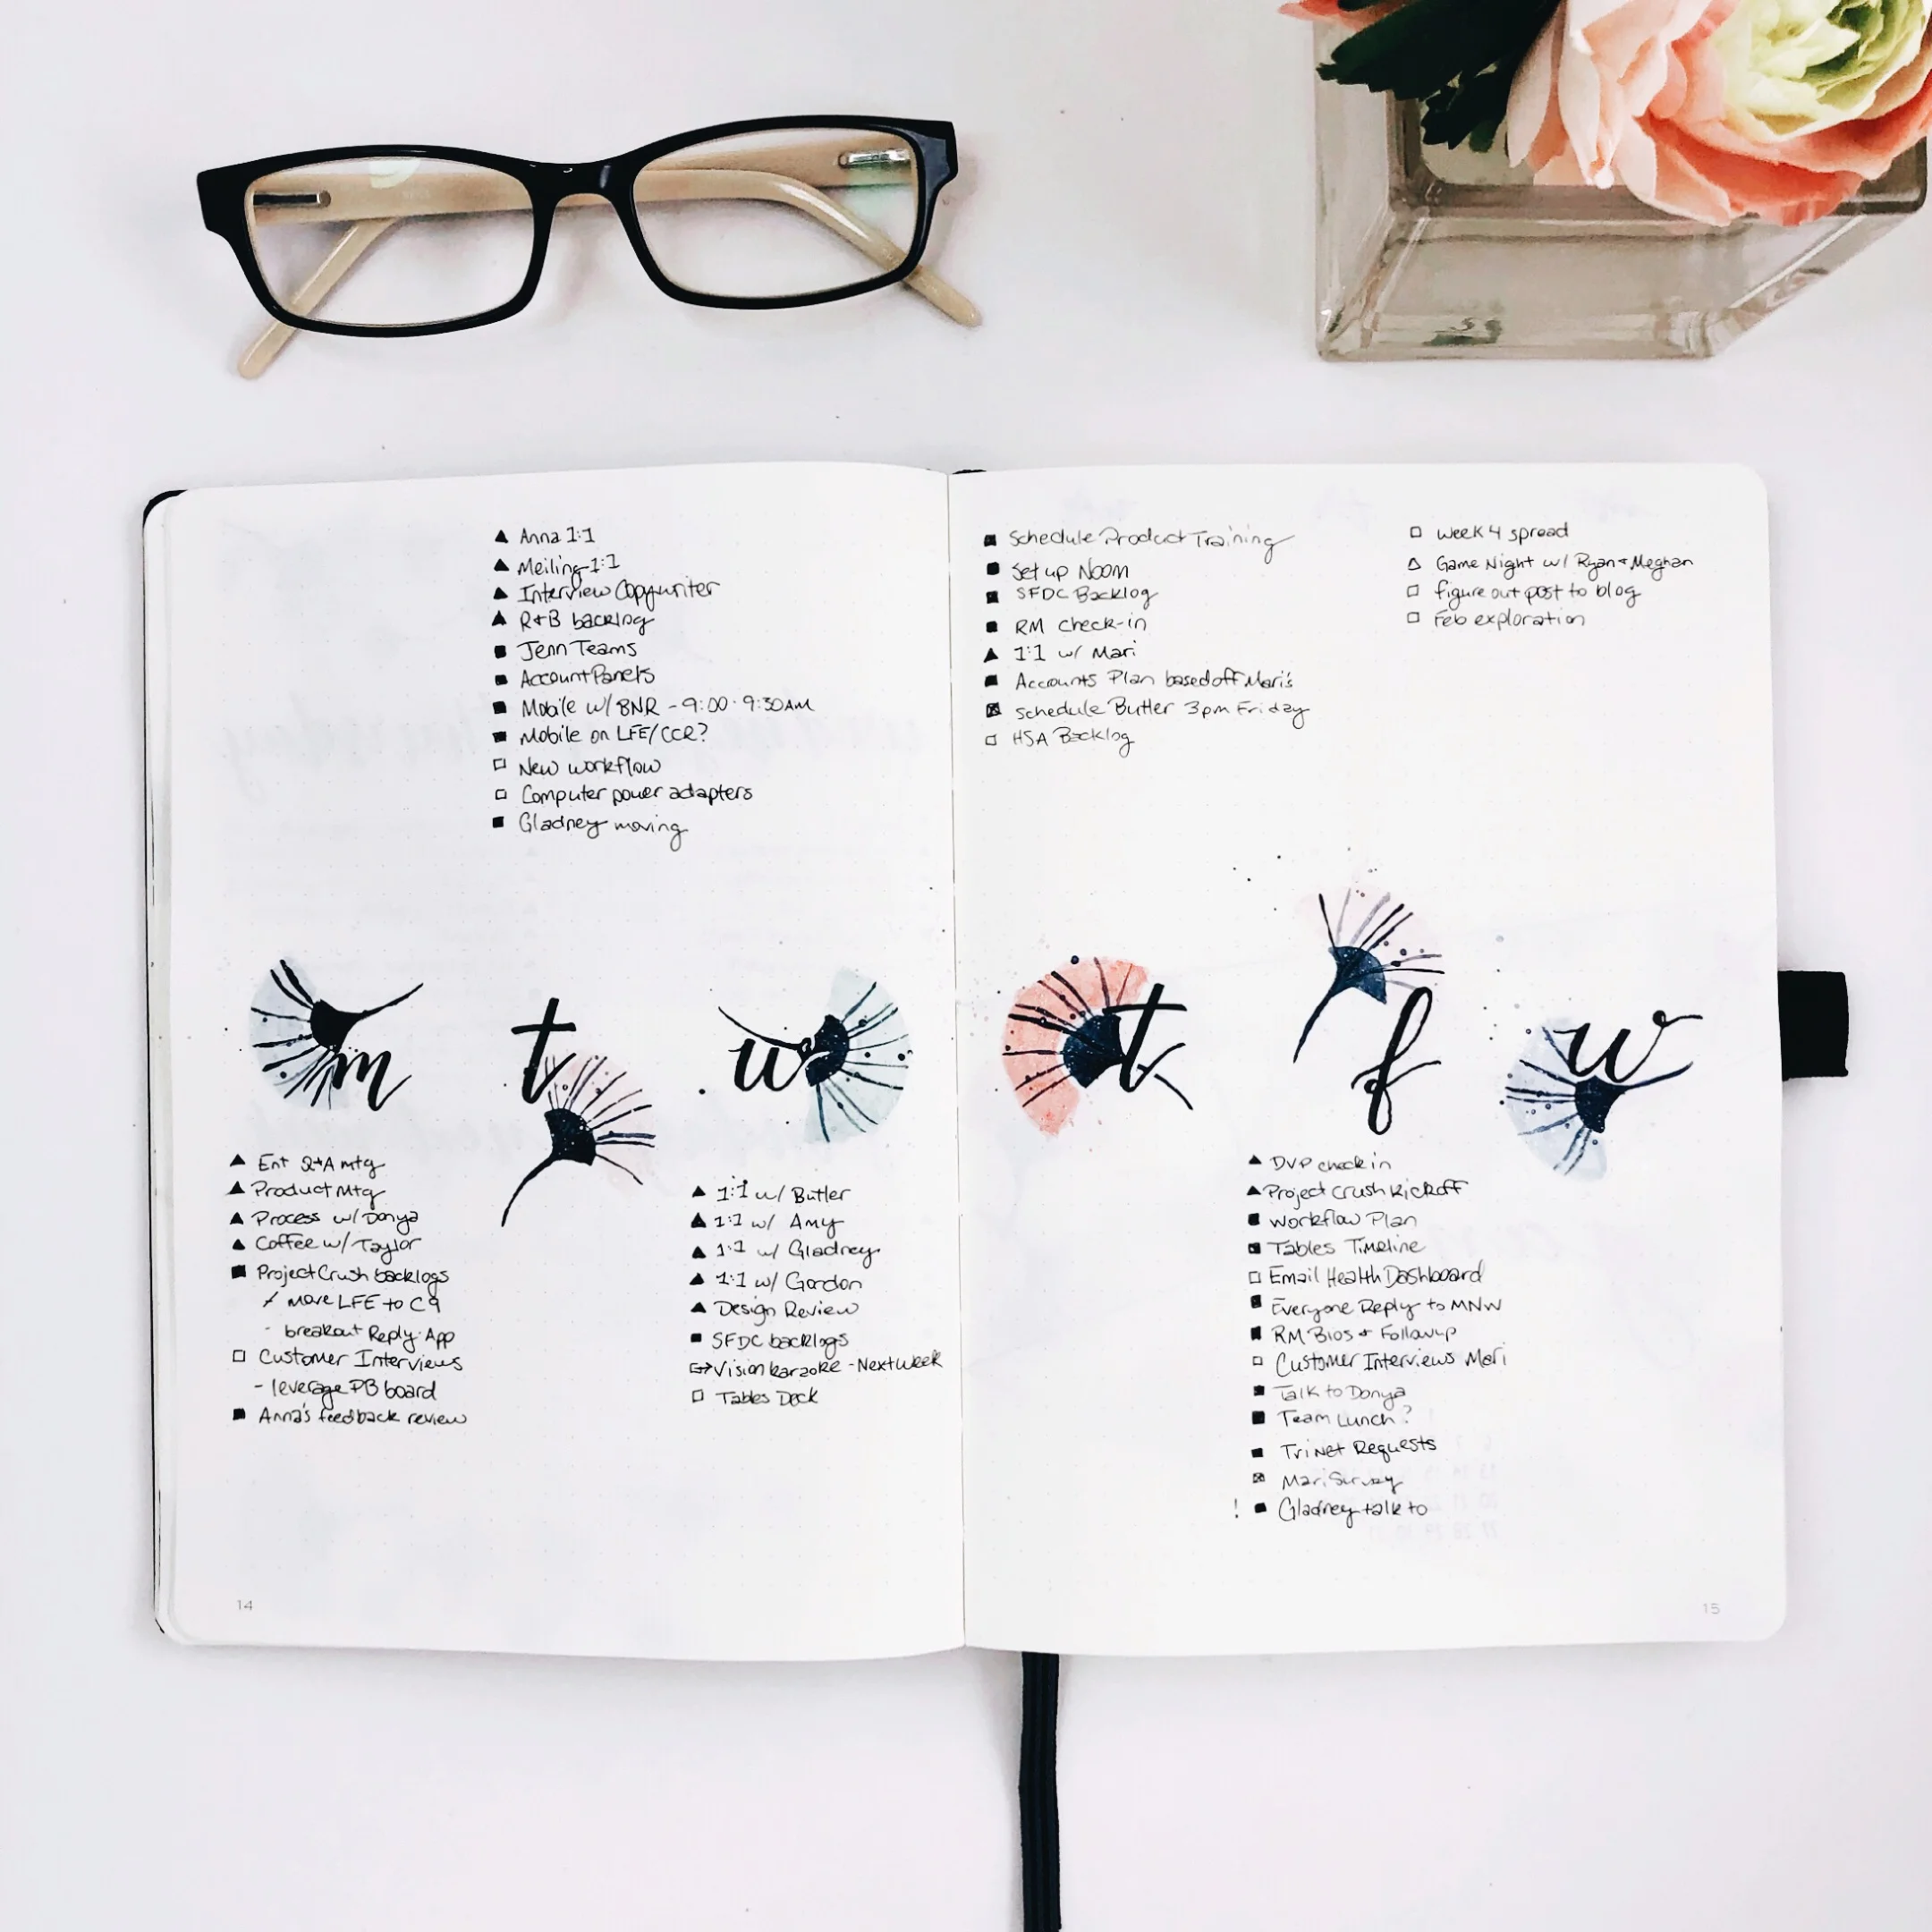 Anna 1:1
Meiling 1:1
Interview Copywriter
R+B backlog
Jenn Teams
Account Panels
Mobile w/ BNR - 9:00 - 9:30AM
Mobile on LFE/CCR?
New workflow
Computer power adapters
Gladney moving
m
t
w
Ent Q+A mtg
Product Mtg
Process w/ Donya
Coffee w/ Taylor
Project Crush backlogs
move LFE to C9
- breakout Reply App
Customer Interviews
- leverage PB board
Anna's feedback review
1:1 w/ Butler
1:1 w/ Amy
1:1 w/ Gladney
1:1 w/ Gordon
Design Review
SFDC backlogs
Vision karaoke - Next Week
Tables Deck
14
Schedule Product Training
Set up Noom
SFDC Backlog
RM check-in
1:1 w/ Mari
Accounts Plan based off Mari's
schedule Butler 3pm Friday
HSA Backlog
week 4 spread
Game Night w/ Ryan + Meghan
figure out post to blog
Feb exploration
t
f
w
DVP check in
Project Crush Kickoff
Workflow Plan
Tables Timeline
Email Health Dashboard
Everyone Reply to MNW
RM Bios + Followup
Customer Interviews Mari
Talk to Donya
Team Lunch?
TriNet Requests
Mari Survey
! Gladney talk to
15